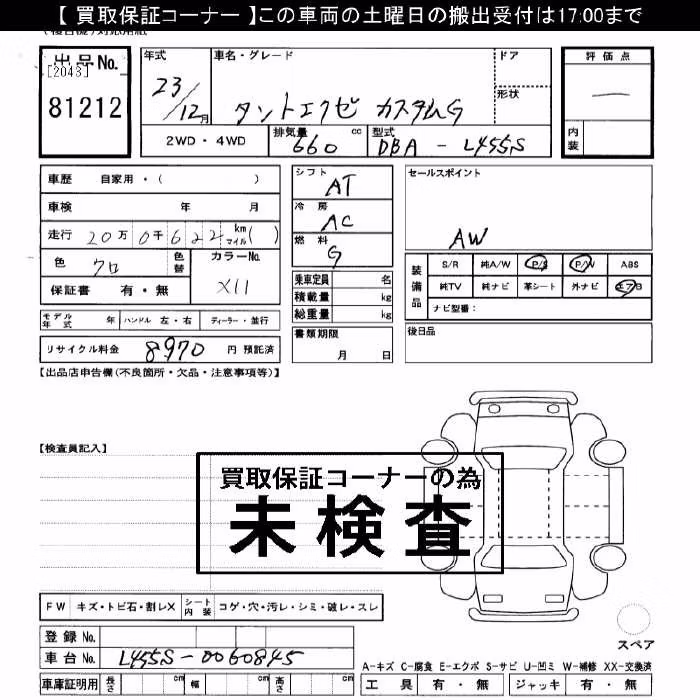 【 買取保証コーナー 】この車両の土曜日の搬出受付は17:00まで
出品No.
[2043]
81212
年式
23/12月
車名・グレード
タントエクゼ カスタムG
ドア
形状
評価点
—
内装
2WD・4WD
排気量 660 cc
型式 DBA - L455S
車歴 自家用・( )
車検 年 月
走行 20万0千622 km マイル ( )
色 クロ 色替
カラーNo. X11
保証書 有・無
シフト AT
冷房 AC
燃料 G
乗車定員 名
積載量 kg
総重量 kg
書類期限
月 日
セールスポイント
AW
装備品
S/R 純A/W P/S P/W ABS
純TV 純ナビ 革シート 外ナビ エアB
ナビ型番:
後日品
モデル年式 年 ハンドル 左・右 ディーラー・並行
リサイクル料金 8970 円 預託済
【出品店申告欄(不良箇所・欠品・注意事項等)】
【検査員記入】
買取保証コーナーの為
未検査
FW キズ・トビ石・割レX シート内装 コゲ・穴・汚レ・シミ・破レ・スレ
登録 No.
車台 No. L455S-0060845
車庫証明用 長さ cm 幅 cm 高さ cm
スペア
A-キズ C-腐食 E-エクボ S-サビ U-凹ミ W-補修 XX-交換済
工具 有・無 ジャッキ 有・無